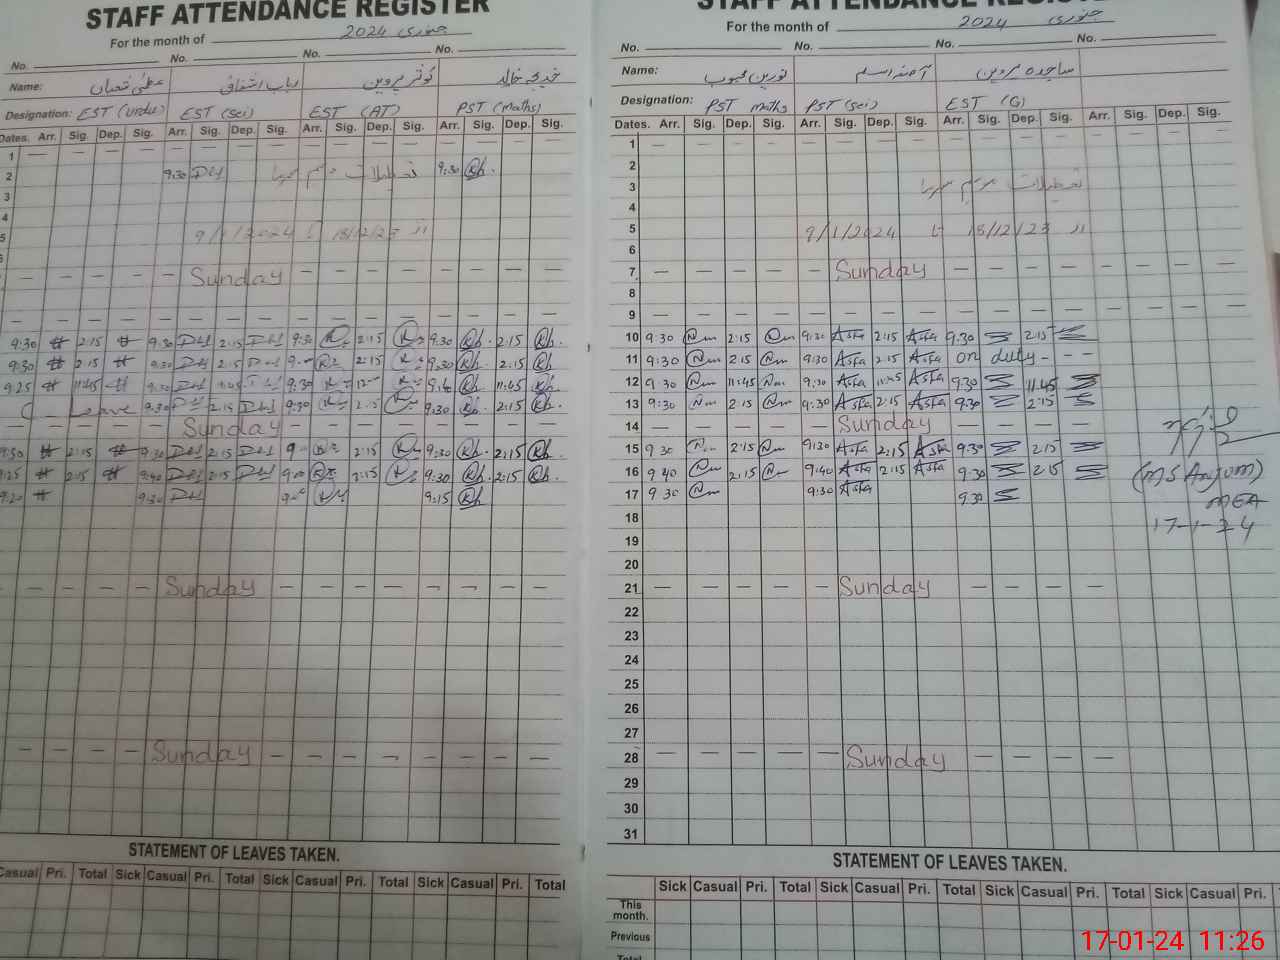 STAFF ATTENDANCE REGISTER
For the month of جنوری 2024
No. No. No. No.
Name: رباب اشفاق کوثر پروین خدیجہ خالد
Designation: EST (Urdu) EST (Sci) EST (AT) PST (Maths)
Dates. Arr. Sig. Dep. Sig. Arr. Sig. Dep. Sig. Arr. Sig. Dep. Sig. Arr. Sig. Dep. Sig.
1 — — — —
2 9:30 تعطیلات موسم سرما 9:30 Kh.
3
4
5 از 18/12/23 تا 9/1/2024
6
7 — — — Sunday — — —
— — — —
9:30 2:15 9:30 2:15 9:30 2:15 9:30 Kh. 2:15 Kh.
9:30 2:15 9:30 2:15 2:15 9:30 Kh. 2:15 Kh.
9:25 11:45 9:30 9:30 Kh. 11:45 Kh.
C — Leave 9:30 2:15 9:30 2:15 9:30 Kh. 2:15 Kh.
— — — Sunday — — —
9:30 2:15 9:30 2:15 2:15 9:30 Kh. 2:15 Kh.
9:25 2:15 9:40 2:15 2:15 9:30 Kh. 2:15 Kh.
9:20 9:30 9:15 Kh.
— — — Sunday — — —
— — — Sunday — — —
STATEMENT OF LEAVES TAKEN.
Casual Pri. Total Sick Casual Pri. Total Sick Casual Pri. Total Sick Casual Pri. Total
STAFF ATTENDANCE REGISTER
For the month of جنوری 2024
No. No. No. No.
Name: نورین محبوب آصفہ اسلم ساجدہ پروین
Designation: PST Maths PST (Sci) EST (G)
Dates. Arr. Sig. Dep. Sig. Arr. Sig. Dep. Sig. Arr. Sig. Dep. Sig. Arr. Sig. Dep. Sig.
1 — — — —
2
3 تعطیلات موسم سرما
4
5 از 18/12/23 تا 9/1/2024
6
7 — — — Sunday — — —
8
9 — — — —
10 9:30 Nm 2:15 Nm 9:30 Asfa 2:15 Asfa 9:30 2:15
11 9:30 Nm 2:15 Nm 9:30 Asfa 2:15 Asfa on duty - - -
12 9:30 Nm 11:45 Nm 9:30 Asfa 11:45 Asfa 9:30 11:45
13 9:30 Nm 2:15 Nm 9:30 Asfa 2:15 Asfa 9:30 2:15
14 — — — Sunday — — —
15 9:30 Nm 2:15 Nm 9:30 Asfa 2:15 Asfa 9:30 2:15
16 9:40 Nm 2:15 Nm 9:40 Asfa 2:15 Asfa 9:30 2:15
17 9:30 Nm 9:30 Asfa 9:30
(MS Anjum)
MEA
17-1-24
18
19
20
21 — — — Sunday — — —
22
23
24
25
26
27
28 — — — Sunday — — —
29
30
31
STATEMENT OF LEAVES TAKEN.
Sick Casual Pri. Total Sick Casual Pri. Total Sick Casual Pri. Total Sick Casual Pri.
This month.
Previous
Total
17-01-24 11:26